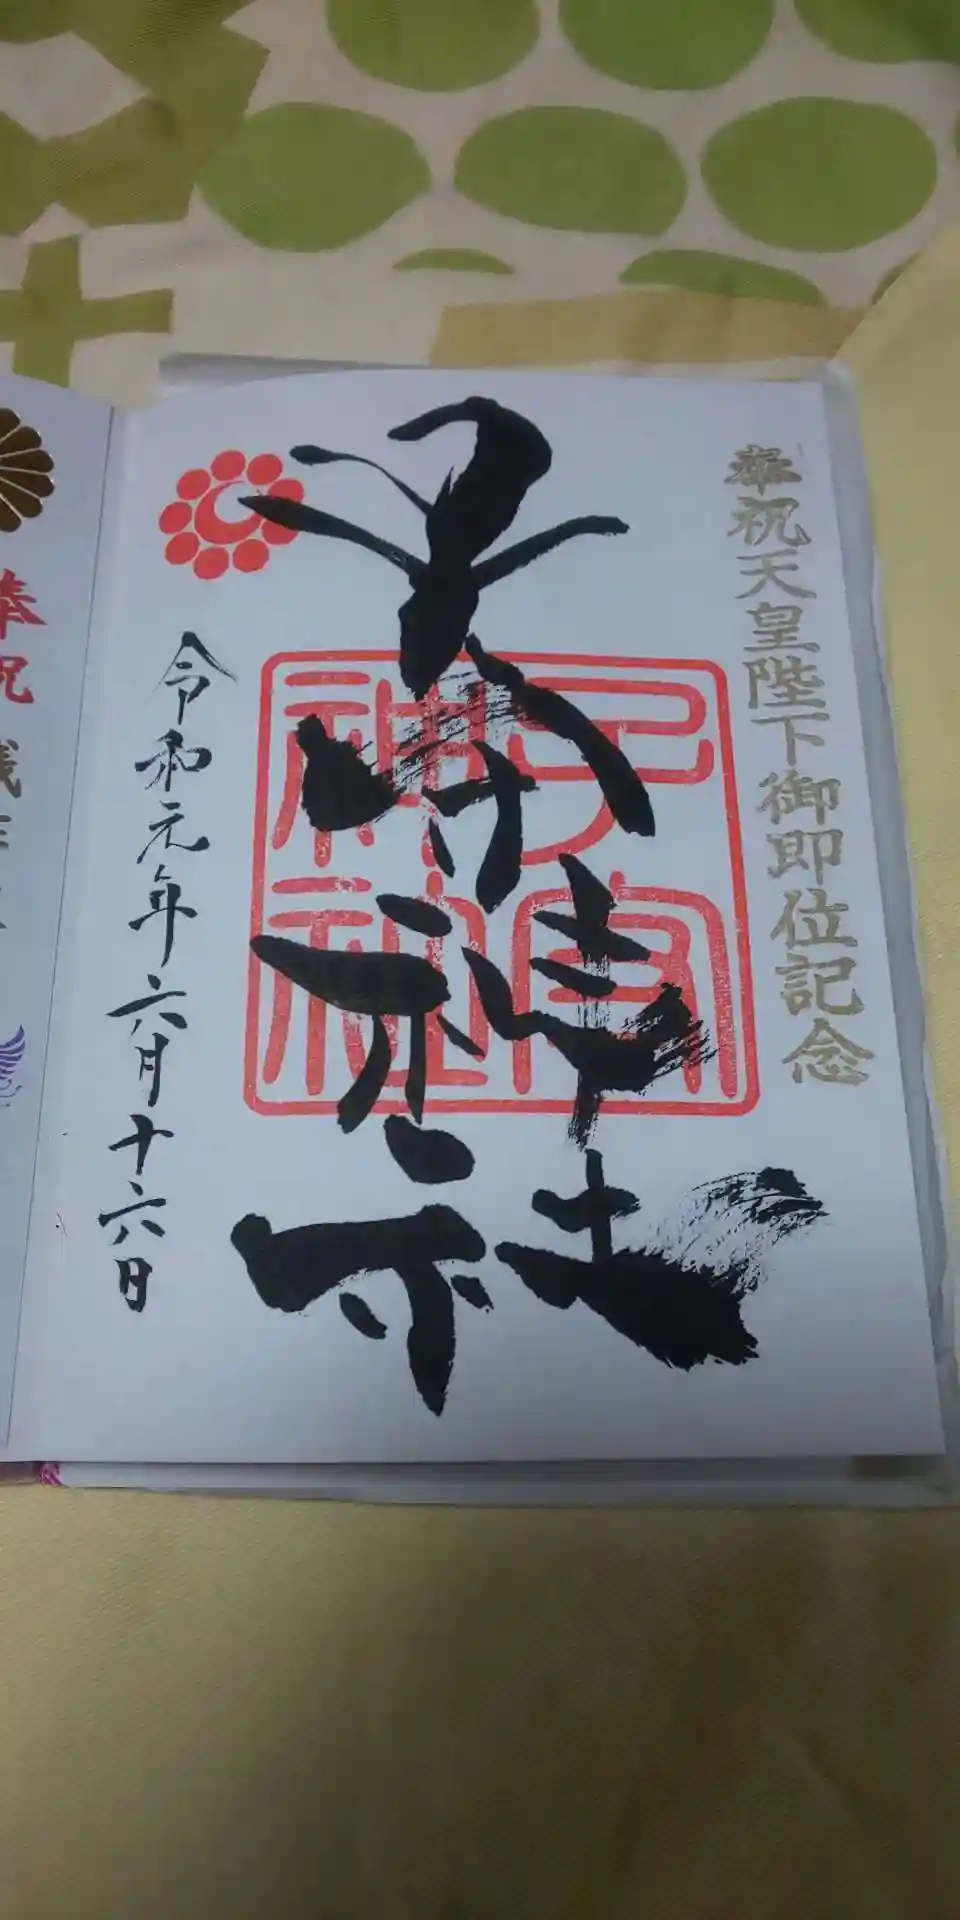 奉祝天皇陛下御即位記念
子安神社
子安
神社
令和元年六月十六日
奉祝